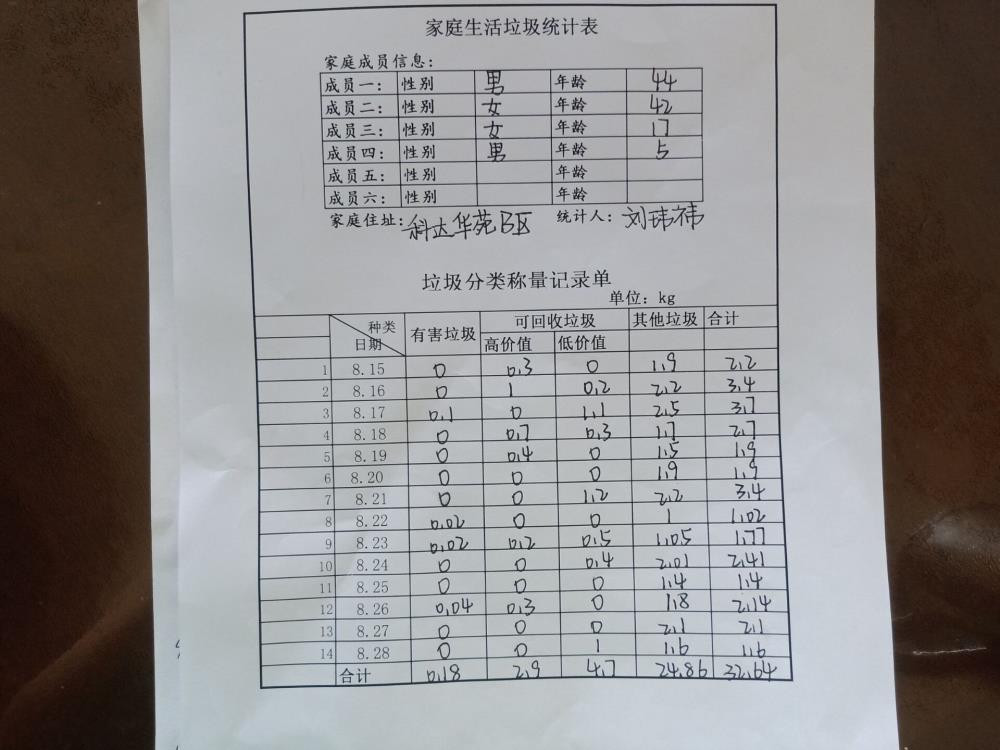 家庭生活垃圾统计表
家庭成员信息：
成员一： 性别 男 年龄 44
成员二： 性别 女 年龄 42
成员三： 性别 女 年龄 17
成员四： 性别 男 年龄 5
成员五： 性别 年龄
成员六： 性别 年龄
家庭住址：科达华苑B区 统计人：刘玮祎
垃圾分类称量记录单
单位：kg
种类 日期 有害垃圾 可回收垃圾 其他垃圾 合计
高价值 低价值
1 8.15 0 0.3 0 1.9 2.2
2 8.16 0 1 0.2 2.2 3.4
3 8.17 0.1 0 1.1 2.5 3.7
4 8.18 0 0.7 0.3 1.7 2.7
5 8.19 0 0.4 0 1.5 1.9
6 8.20 0 0 0 1.9 1.9
7 8.21 0 0 1.2 2.2 3.4
8 8.22 0.02 0 0 1 1.02
9 8.23 0.02 0.2 0.5 1.05 1.77
10 8.24 0 0 0.4 2.01 2.41
11 8.25 0 0 0 1.4 1.4
12 8.26 0.04 0.3 0 1.8 2.14
13 8.27 0 0 0 2.1 2.1
14 8.28 0 0 1 1.6 1.6
合计 0.18 2.9 4.7 24.86 32.64